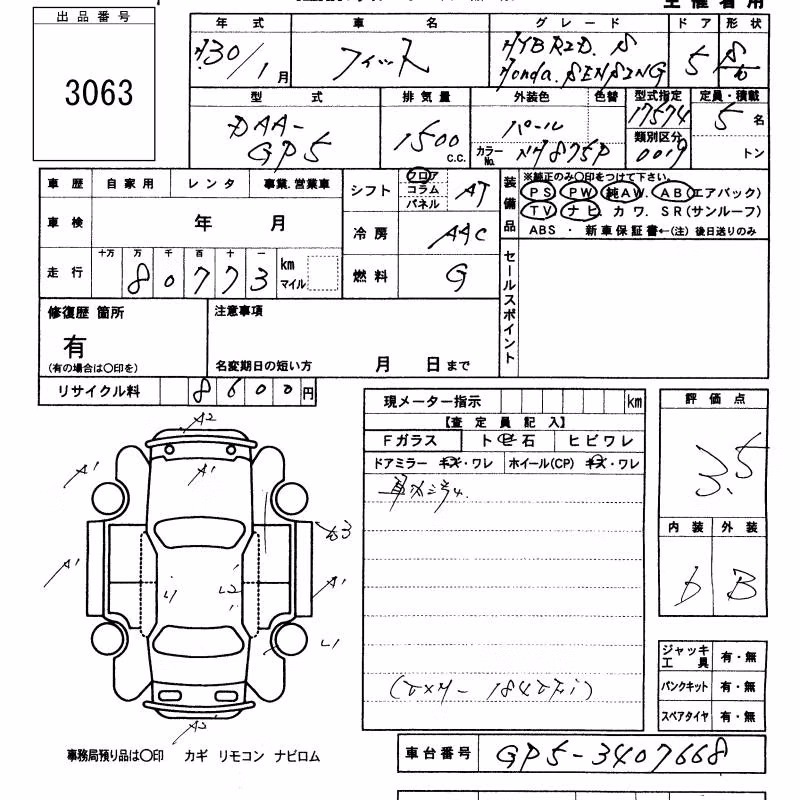 主催者用
出品番号
3063
年式 車名 グレード ドア 形状
H30/1月 フィット HYBRID. S
Honda. SENSING 5 S/b
型式 排気量 外装色 色替 型式指定 定員・積載
DAA-
GP5 1500 c.c. パール 17574 5名
カラーNo. NH875P 類別区分 0019 トン
車歴 自家用 レンタ 事業.営業車
シフト フロア コラム パネル AT
装備品
※純正のみ〇印をつけて下さい。
PS PW 純AW. AB(エアバック)
TV ナビ. カワ. SR(サンルーフ)
ABS・新車保証書←(注) 後日送りのみ
車検 年 月
冷房 AAC
走行 十万 万 千 百 十 一
80773 km マイル
燃料 G
セールスポイント
修復歴 箇所
有
(有の場合は〇印を)
注意事項
名変期日の短い方 月 日まで
リサイクル料 8600円
現メーター指示 km
【査定員記入】
Fガラス ト 石 ヒビワレ
ドアミラー キズ・ワレ ホイール(CP) キズ・ワレ
評価点
3.5
内装 外装
b B
A2
A1 A1
A1 A1
L1 L2
L1
A2
ジャッキ工具 有・無
パンクキット 有・無
スペアタイヤ 有・無
車台番号 GP5-3407668
事務局預り品は〇印 カギ リモコン ナビロム